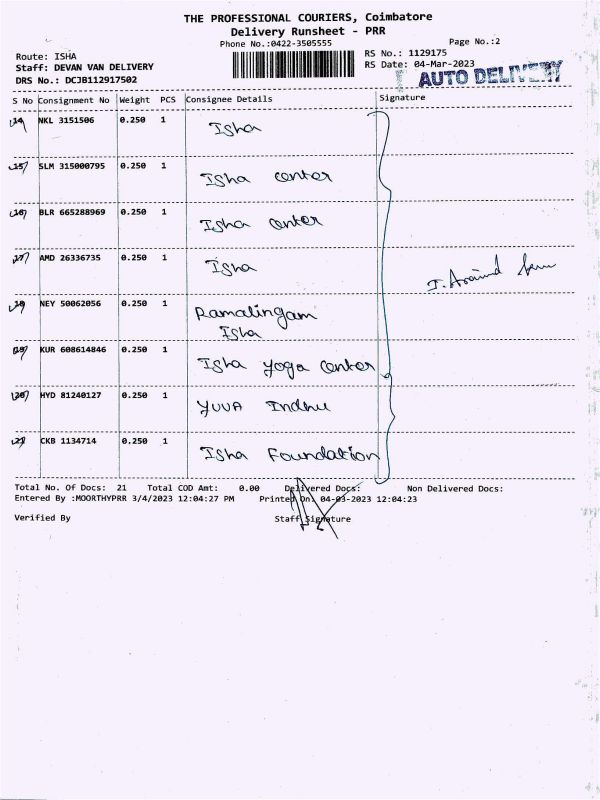 THE PROFESSIONAL COURIERS, Coimbatore
Delivery Runsheet - PRR
Phone No.:0422-3505555
Page No.:2
Route: ISHA
Staff: DEVAN VAN DELIVERY
DRS No.: DCJB112917502
RS No.: 1129175
RS Date: 04-Mar-2023
AUTO DELIVERY
S No Consignment No Weight PCS Consignee Details Signature
14 NKL 3151506 0.250 1 Isha
15 SLM 315000795 0.250 1 Isha center
16 BLR 665288969 0.250 1 Isha center
17 AMD 26336735 0.250 1 Isha
18 NEY 50062056 0.250 1 Ramalingam
Isha
19 KUR 608614846 0.250 1 Isha Yoga Center
20 HYD 81240127 0.250 1 YUVA Indhu
21 CKB 1134714 0.250 1 Isha Foundation
Total No. Of Docs: 21 Total COD Amt: 0.00 Delivered Docs: Non Delivered Docs:
Entered By :MOORTHYPRR 3/4/2023 12:04:27 PM Printed On: 04-03-2023 12:04:23
Verified By Staff Signature